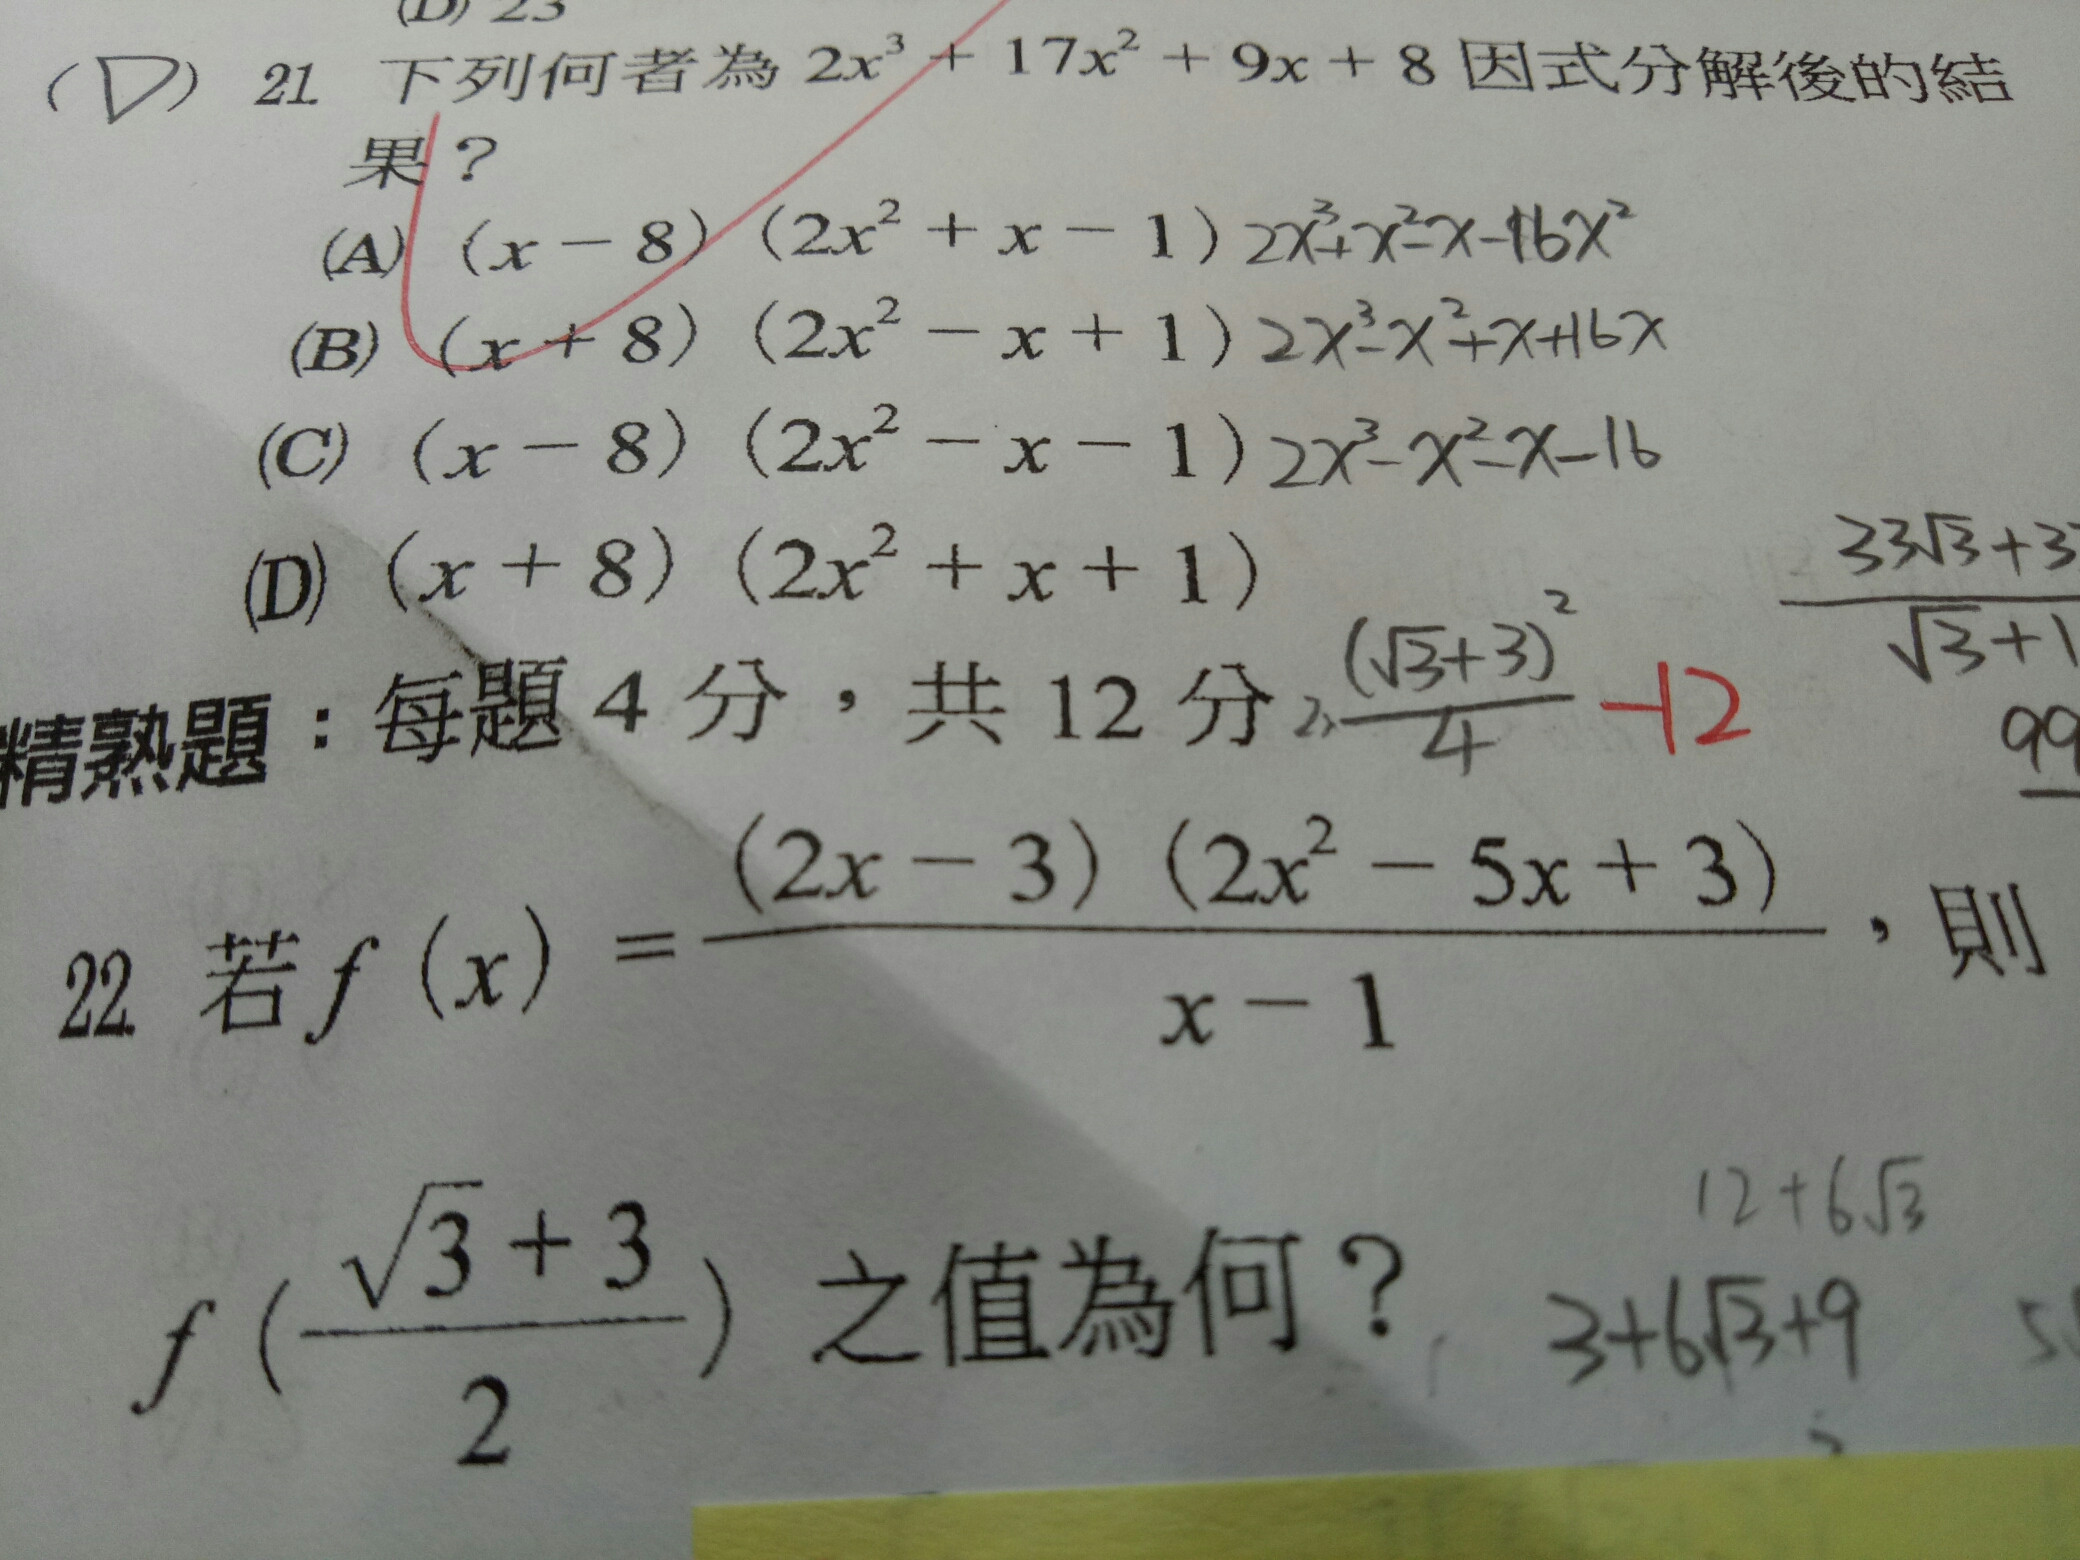 (D) 23
(D) 21. 下列何者為 2x³ + 17x² + 9x + 8 因式分解後的結
果？
(A) (x − 8) (2x² + x − 1) 2x³+x²-x-16x²
(B) (x + 8) (2x² − x + 1) 2x³-x²+x+16x
(C) (x − 8) (2x² − x − 1) 2x³-x²-x-16
(D) (x + 8) (2x² + x + 1)
33√3+3
√3+1
99
精熟題：每題 4 分，共 12 分 (√3+3)²/4 -12
22 若 f (x) = (2x − 3) (2x² − 5x + 3) / x − 1 ，則
f ( √3 + 3 / 2 ) 之值為何？
12+6√3
3+6√3+9